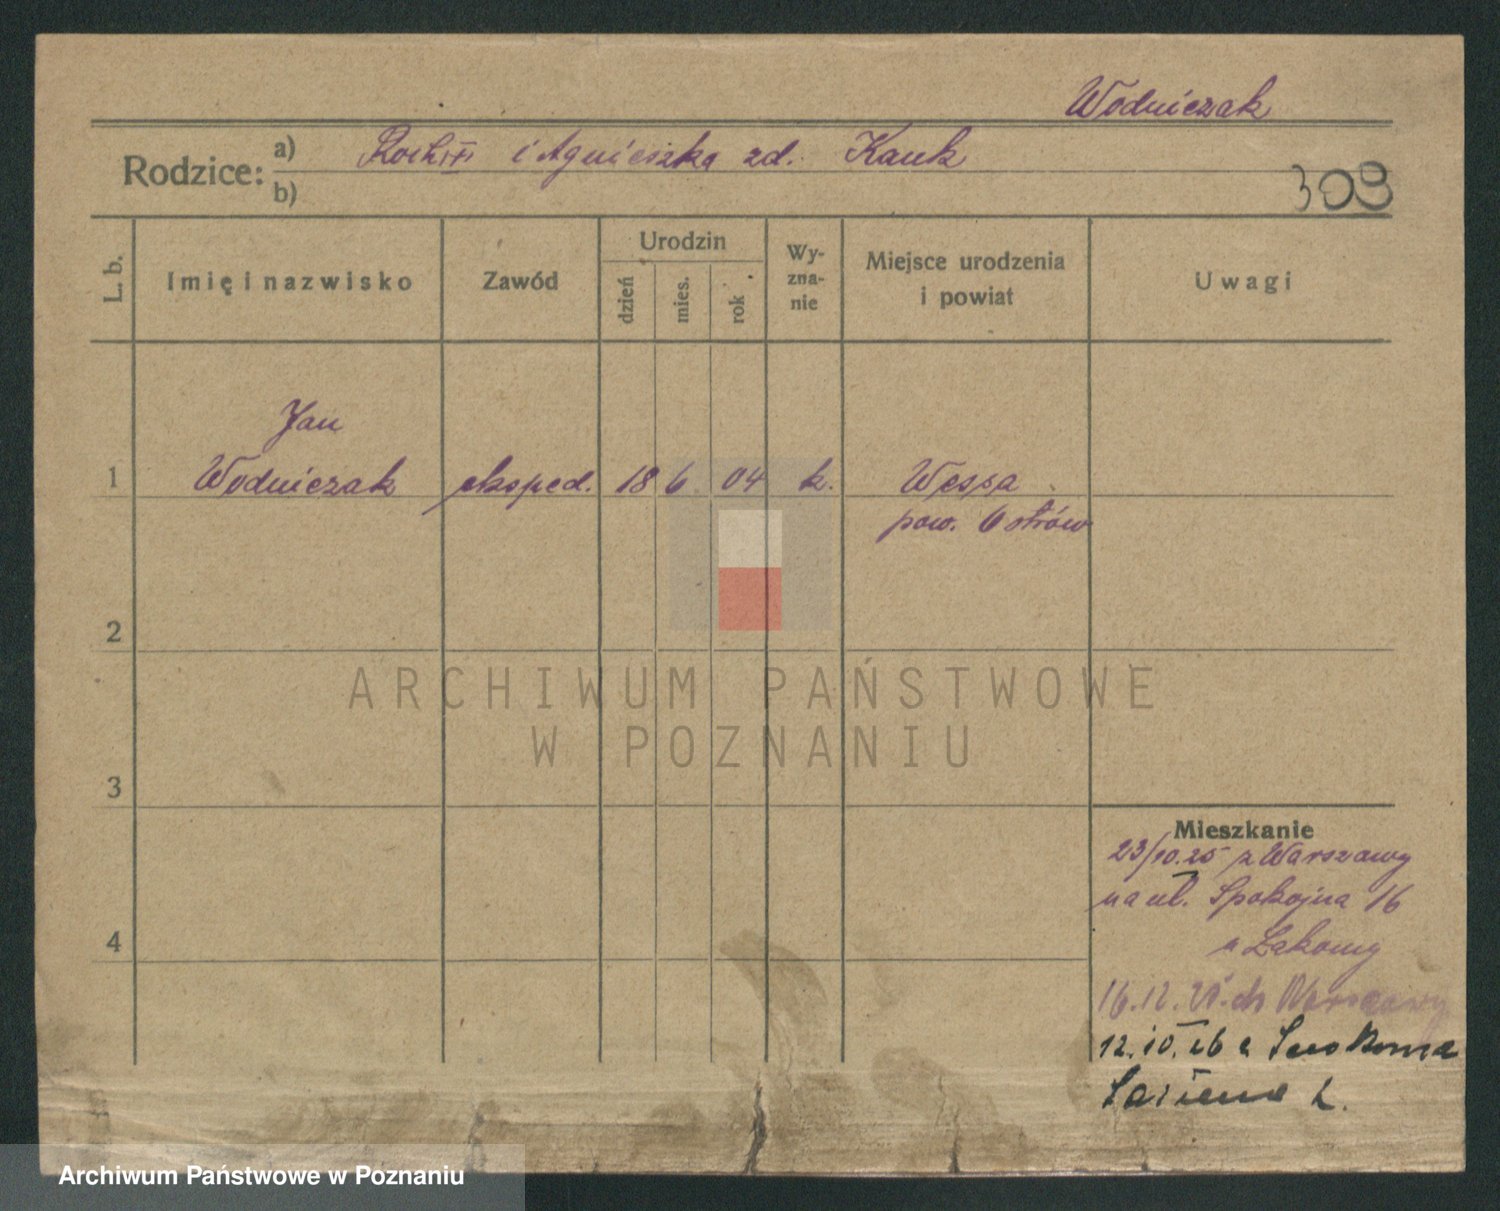 Wodniczak
Rodzice: a) Roch i Agnieszka zd. Kauk
b)
309
L. b. Imię i nazwisko Zawód Urodzin dzień mies. rok Wy-zna-nie Miejsce urodzenia i powiat Uwagi
Jan
1 Wodniczak eksped. 18 6 04 k. Wessa
pow. Ostrów
2
ARCHIWUM PAŃSTWOWE
W POZNANIU
3
Mieszkanie
23/10.25 z Warszawy
na ul. Spokojna 16
4
16.12.25. do Warszawy
12.10.26
Archiwum Państwowe w Poznaniu